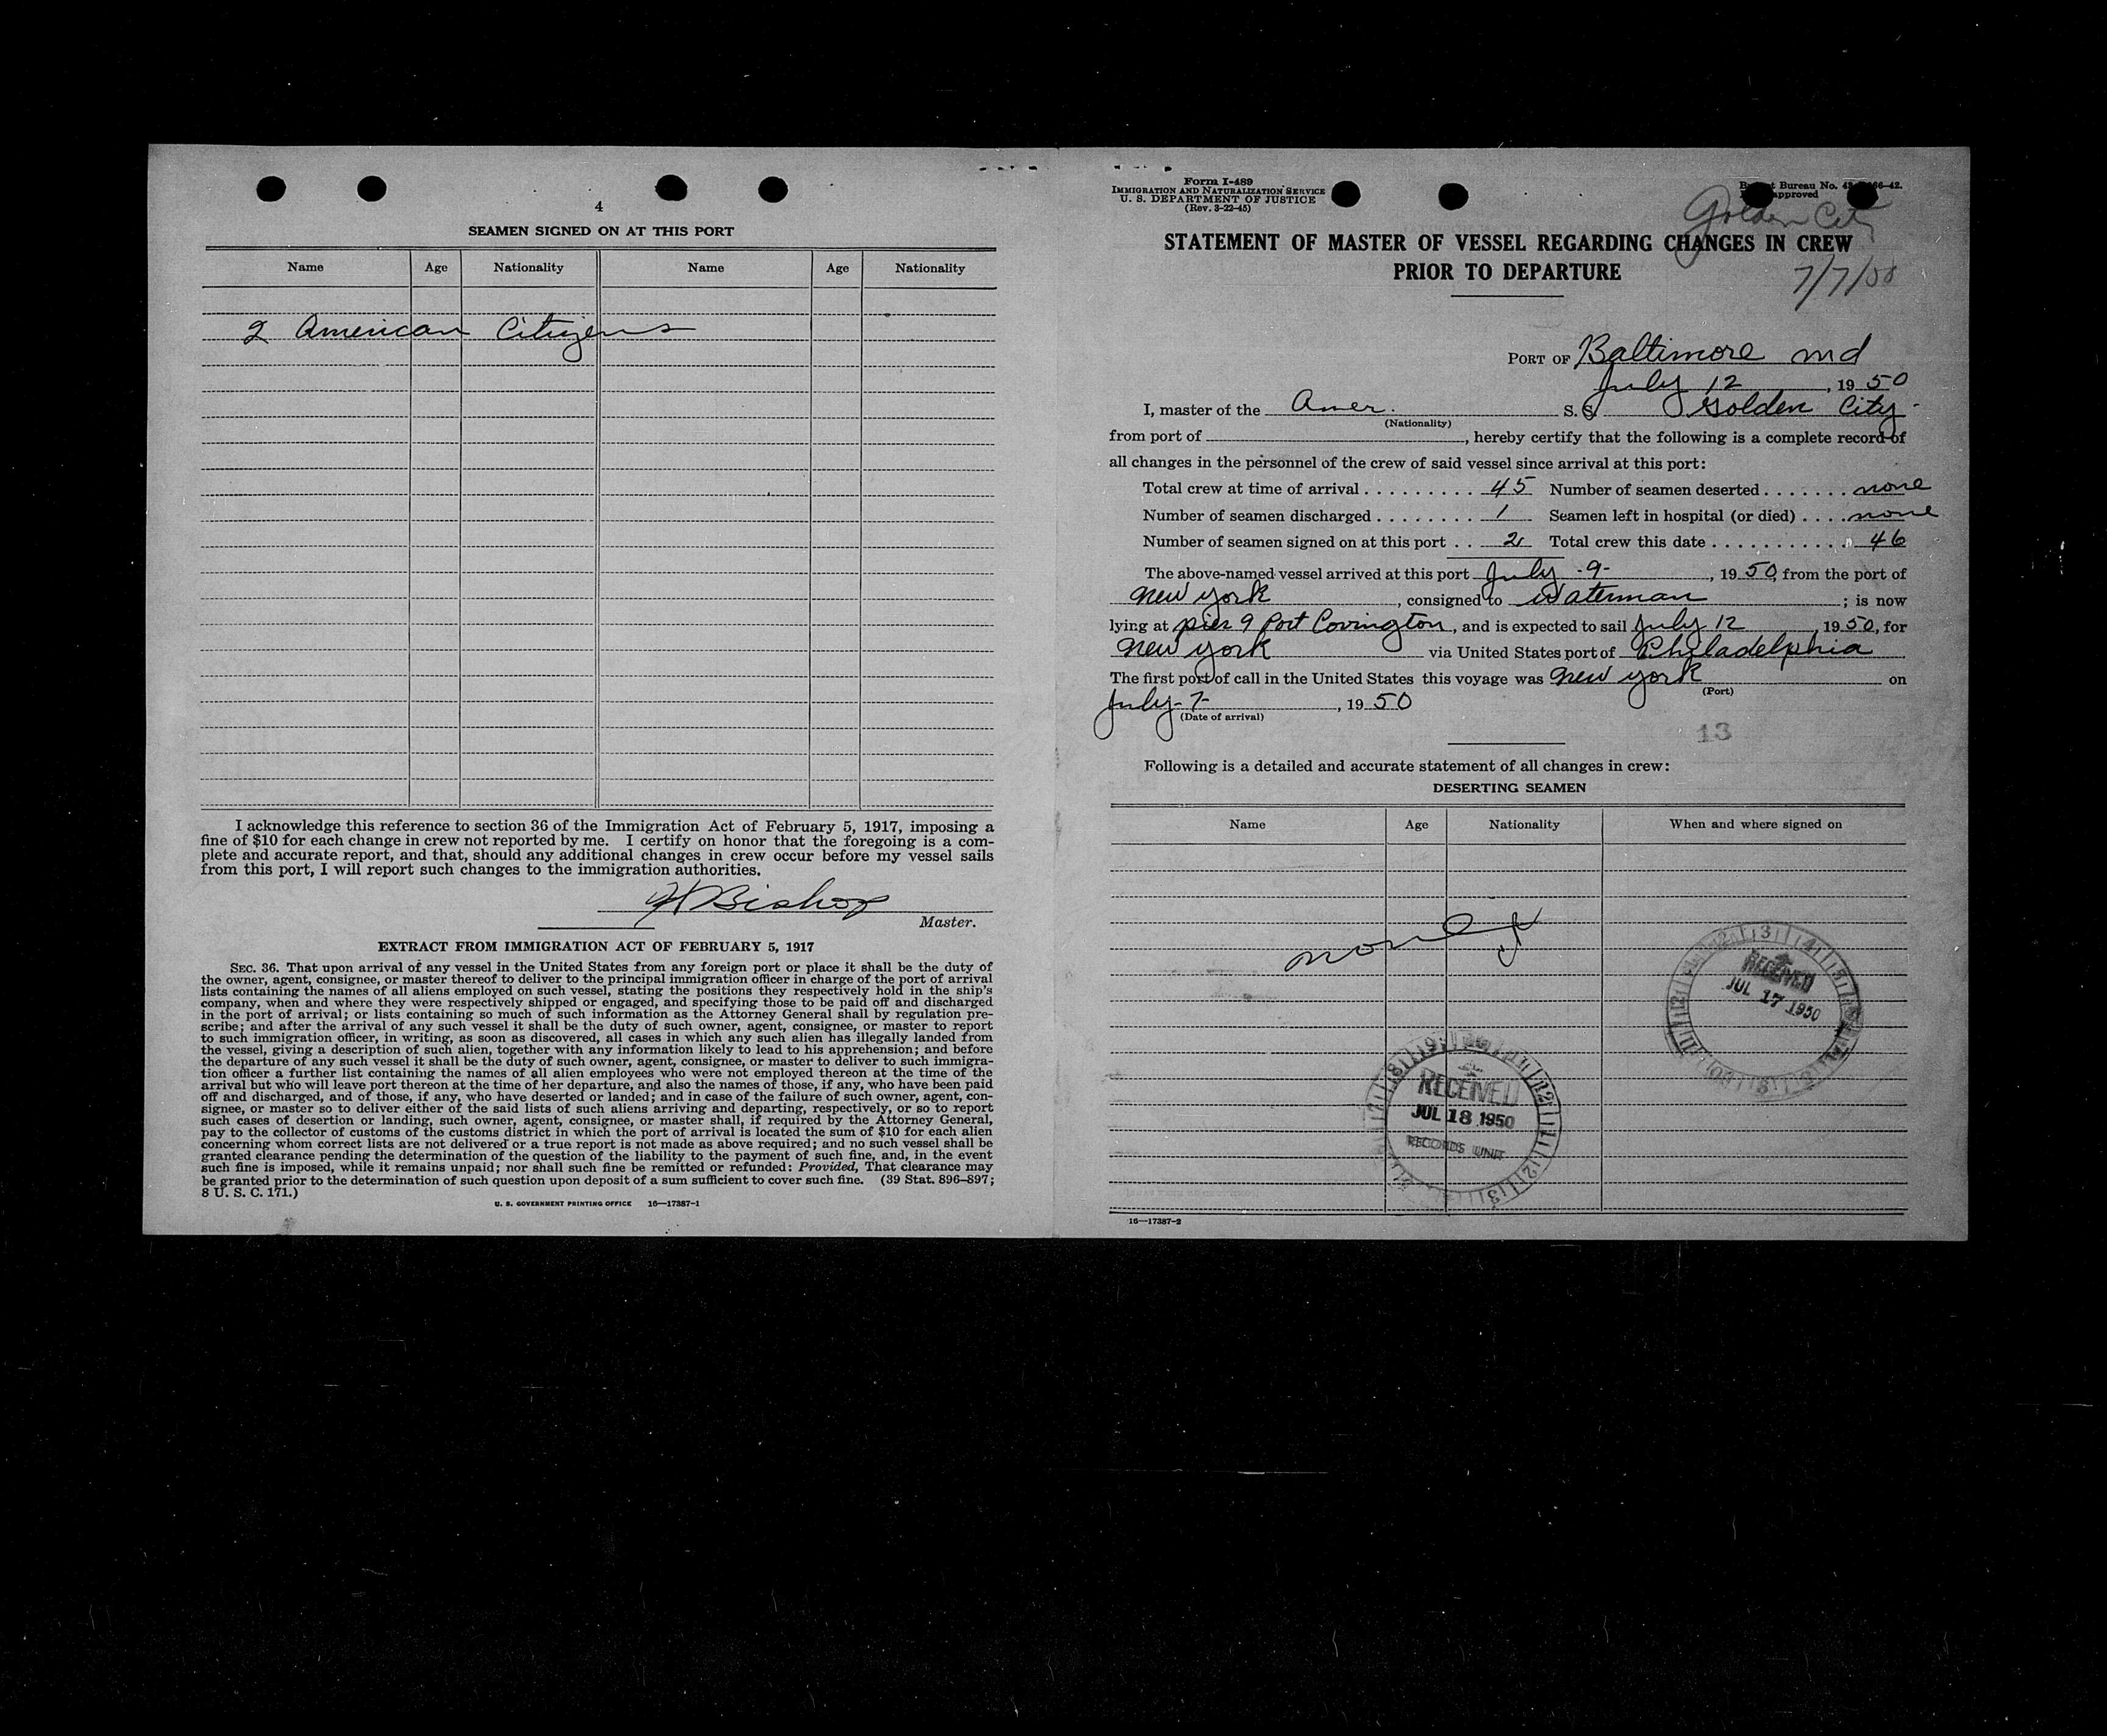 4
SEAMEN SIGNED ON AT THIS PORT
Name Age Nationality Name Age Nationality
2 American Citizens
I acknowledge this reference to section 36 of the Immigration Act of February 5, 1917, imposing a
fine of $10 for each change in crew not reported by me. I certify on honor that the foregoing is a com-
plete and accurate report, and that, should any additional changes in crew occur before my vessel sails
from this port, I will report such changes to the immigration authorities.
Bishop
Master.
EXTRACT FROM IMMIGRATION ACT OF FEBRUARY 5, 1917
SEC. 36. That upon arrival of any vessel in the United States from any foreign port or place it shall be the duty of
the owner, agent, consignee, or master thereof to deliver to the principal immigration officer in charge of the port of arrival
lists containing the names of all aliens employed on such vessel, stating the positions they respectively hold in the ship's
company, when and where they were respectively shipped or engaged, and specifying those to be paid off and discharged
in the port of arrival; or lists containing so much of such information as the Attorney General shall by regulation pre-
scribe; and after the arrival of any such vessel it shall be the duty of such owner, agent, consignee, or master to report
to such immigration officer, in writing, as soon as discovered, all cases in which any such alien has illegally landed from
the vessel, giving a description of such alien, together with any information likely to lead to his apprehension; and before
the departure of any such vessel it shall be the duty of such owner, agent, consignee, or master to deliver to such immigra-
tion officer a further list containing the names of all alien employees who were not employed thereon at the time of the
arrival but who will leave port thereon at the time of her departure, and also the names of those, if any, who have been paid
off and discharged, and of those, if any, who have deserted or landed; and in case of the failure of such owner, agent, con-
signee, or master so to deliver either of the said lists of such aliens arriving and departing, respectively, or so to report
such cases of desertion or landing, such owner, agent, consignee, or master shall, if required by the Attorney General,
pay to the collector of customs of the customs district in which the port of arrival is located the sum of $10 for each alien
concerning whom correct lists are not delivered or a true report is not made as above required; and no such vessel shall be
granted clearance pending the determination of the question of the liability to the payment of such fine, and, in the event
such fine is imposed, while it remains unpaid; nor shall such fine be remitted or refunded: Provided, That clearance may
be granted prior to the determination of such question upon deposit of a sum sufficient to cover such fine. (39 Stat. 896–897;
8 U. S. C. 171.)
U. S. GOVERNMENT PRINTING OFFICE 16—17387-1
Form I-489
IMMIGRATION AND NATURALIZATION SERVICE
U. S. DEPARTMENT OF JUSTICE
(Rev. 3-22-45)
Bureau No. 42.
approved
Golden City
STATEMENT OF MASTER OF VESSEL REGARDING CHANGES IN CREW
PRIOR TO DEPARTURE
7/7/50
PORT OF Baltimore Md
July 12, 1950
I, master of the Amer. S. S. Golden City
(Nationality)
from port of , hereby certify that the following is a complete record of
all changes in the personnel of the crew of said vessel since arrival at this port:
Total crew at time of arrival 45 Number of seamen deserted none
Number of seamen discharged 1 Seamen left in hospital (or died) none
Number of seamen signed on at this port 2 Total crew this date 46
The above-named vessel arrived at this port July -9-, 1950, from the port of
New York, consigned to Waterman; is now
lying at pier 9 Port Covington, and is expected to sail July 12, 1950, for
New York via United States port of Philadelphia
The first port of call in the United States this voyage was New York on
(Port)
July-7-, 1950
(Date of arrival)
13
Following is a detailed and accurate statement of all changes in crew:
DESERTING SEAMEN
Name Age Nationality When and where signed on
none
RECEIVED
JUL 17 1950
RECEIVED
JUL 18 1950
RECORDS UNIT
16—17387-2